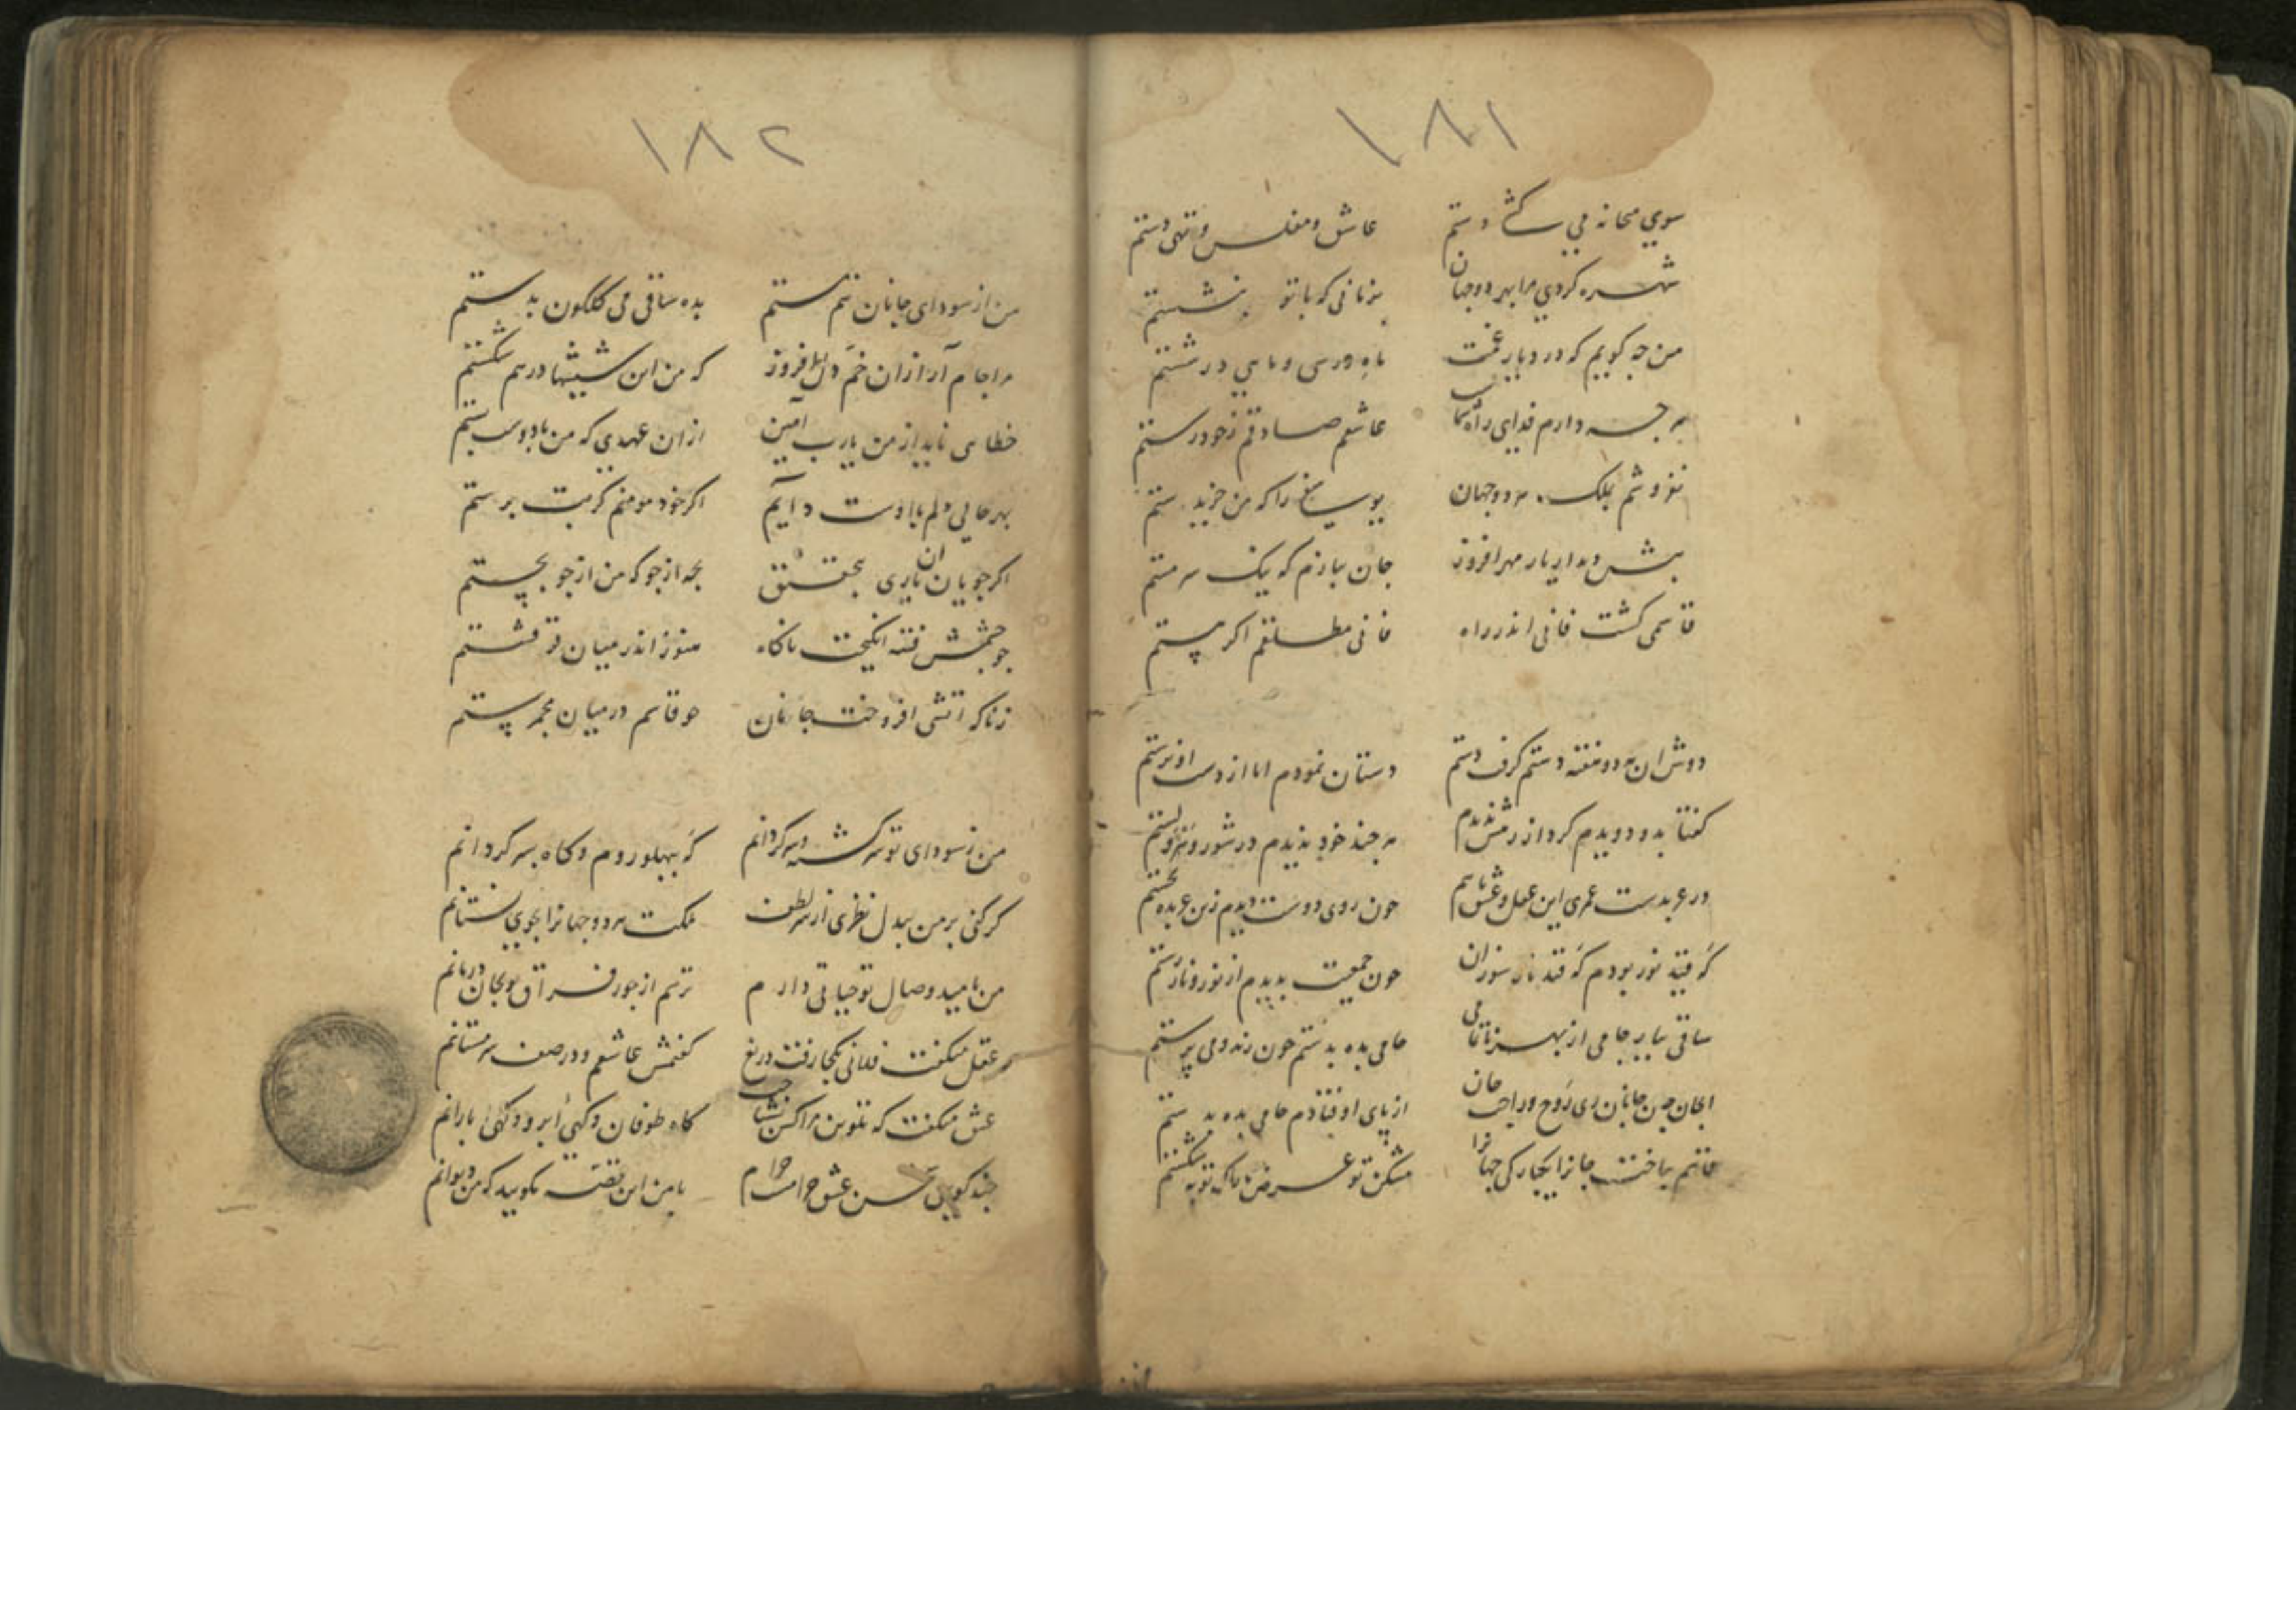 ۱۸۱
سوی میخانه می کشد دستم عاشق و مفلس و تهی دستم
شهره کردی مرا بهر دو جهان بزمانی که با تو بنشستم
من چه کویم که در دیار غمت ماه در سی و ماهی در شستم
هر چه دارم فدای راه شما عاشقم صادقم ز خود رستم
نفروشم بملک هر دو جهان بوسه را که من خرید ستم
پیش دیدار یار مهرافروز جان ببازم که یک سر مستم
قاسمی کشت فانی اندر راه فانی مطلقم اکر هستم
دوش ان مه دو هفته دستم کرفت دستم دستان نمودم اما از دست او نرستم
کفتا بدو دویدم کرد از رمش ندیدم هر چند خود بدیدم در شور و شر و لستم
در عربدست عمری این عقل و عشق باهم چون روی دوست دیدم زین عربده بجستم
که قید نور بودم که قید نار سوزان چون جمعیت بدیدم از نور و نار رستم
ساقی بیار جامی از بهر ناتمامی جامی بده بدستم چون رند و می پرستم
ای جان جان جانان ری روح و راحت جان از پای اوفتادم جامی بده بدستم
قاسم بباخت جانرا یکبارکی جهانرا مشکن تو عرض ما را کر توبه شکستم
۱۸۲
من از سودای جانان نیم مستم بده ساقی می کلکون بدستم
مرا جام آر ازان خم دل افروز که من این شیشها درهم شکستم
خطا می ناید از من یارب آمین ازان عهدی که من با دوست بستم
بهر حالی دلم با اوست دایم اکر خود مومنم کر بت پرستم
اکر جویان ان یاری بتحقیق بجه از جو که من از جو بجستم
چو چشمش فتنه انکیخت ناکاه هنوز اندر میان فتنه هستم
ز ناکه اتشی افروخت جانان چو قاسم در میان مجمر هستم
من ز سودای تو سرکشته و سرکردانم که بپهلو روم و کاه بسر کردانم
کر کنی بر من بیدل نظری از سر لطف ملکت هر دو جهانرا بجوی نستانم
من بامید وصال تو حیاتی دارم ترسم از جور فراق تو بجان درمانم
عقل میکفت فلانی بکجا رفت دریغ کفتمش عاشقم و در صف سرمستانم
عشق میکفت که تلوین مرا کس نشناخت کاه طوفان و کهی ابر و کهی بارانم
چند کویی سخن عشق حرامست حرام با من این قصه مکویید که من دیوانم